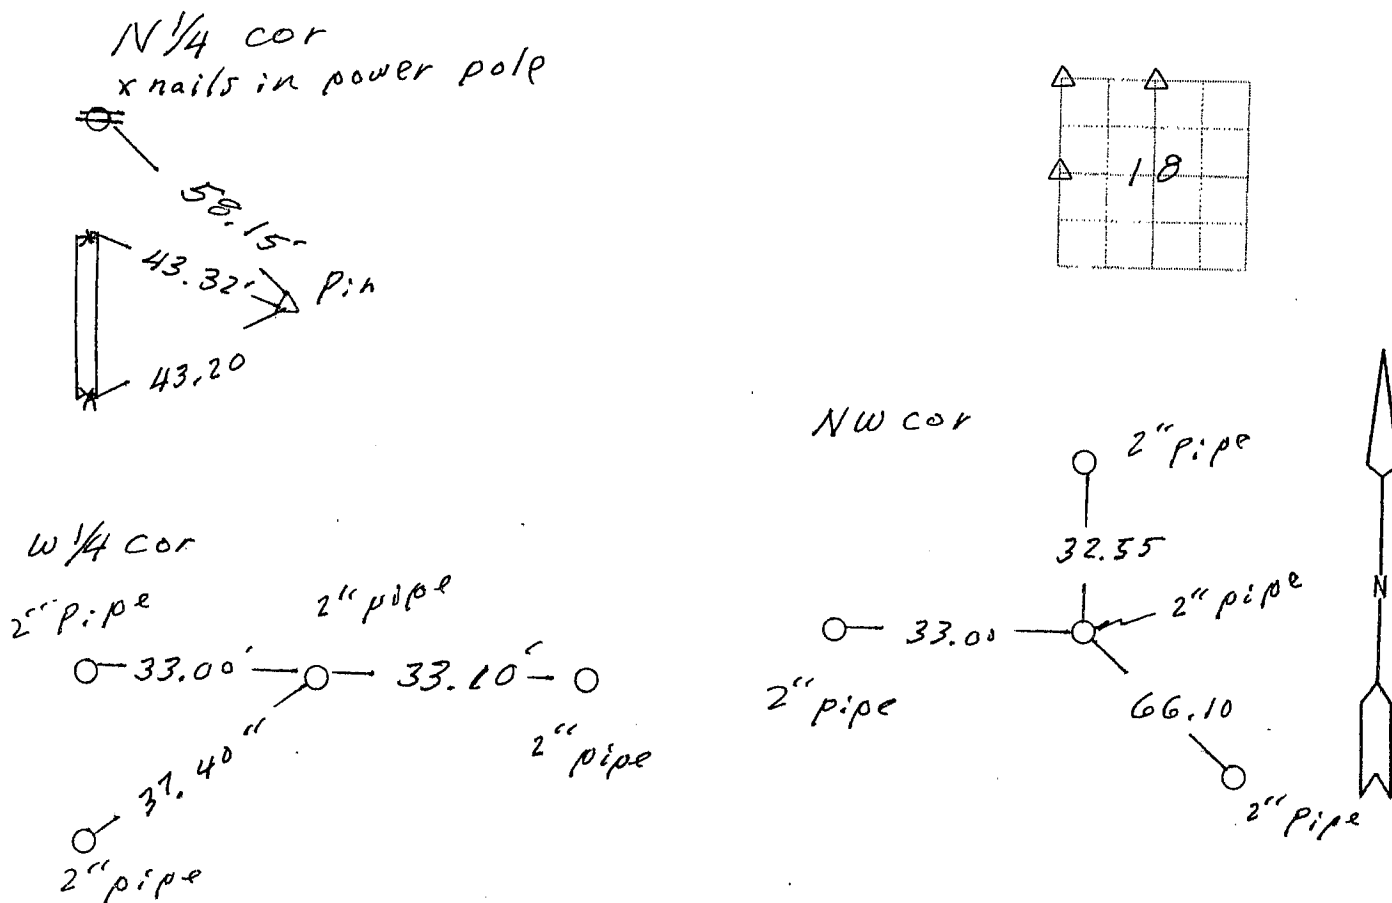 N 1/4 cor
x nails in power pole
58.15'
43.32'
Pin
43.20
18
NW cor
2" pipe
32.55
2" pipe
33.00
2" pipe
66.10
2" pipe
N
W 1/4 cor
2" Pipe
2" pipe
33.00'
33.10'
2" pipe
37.40"
2" pipe